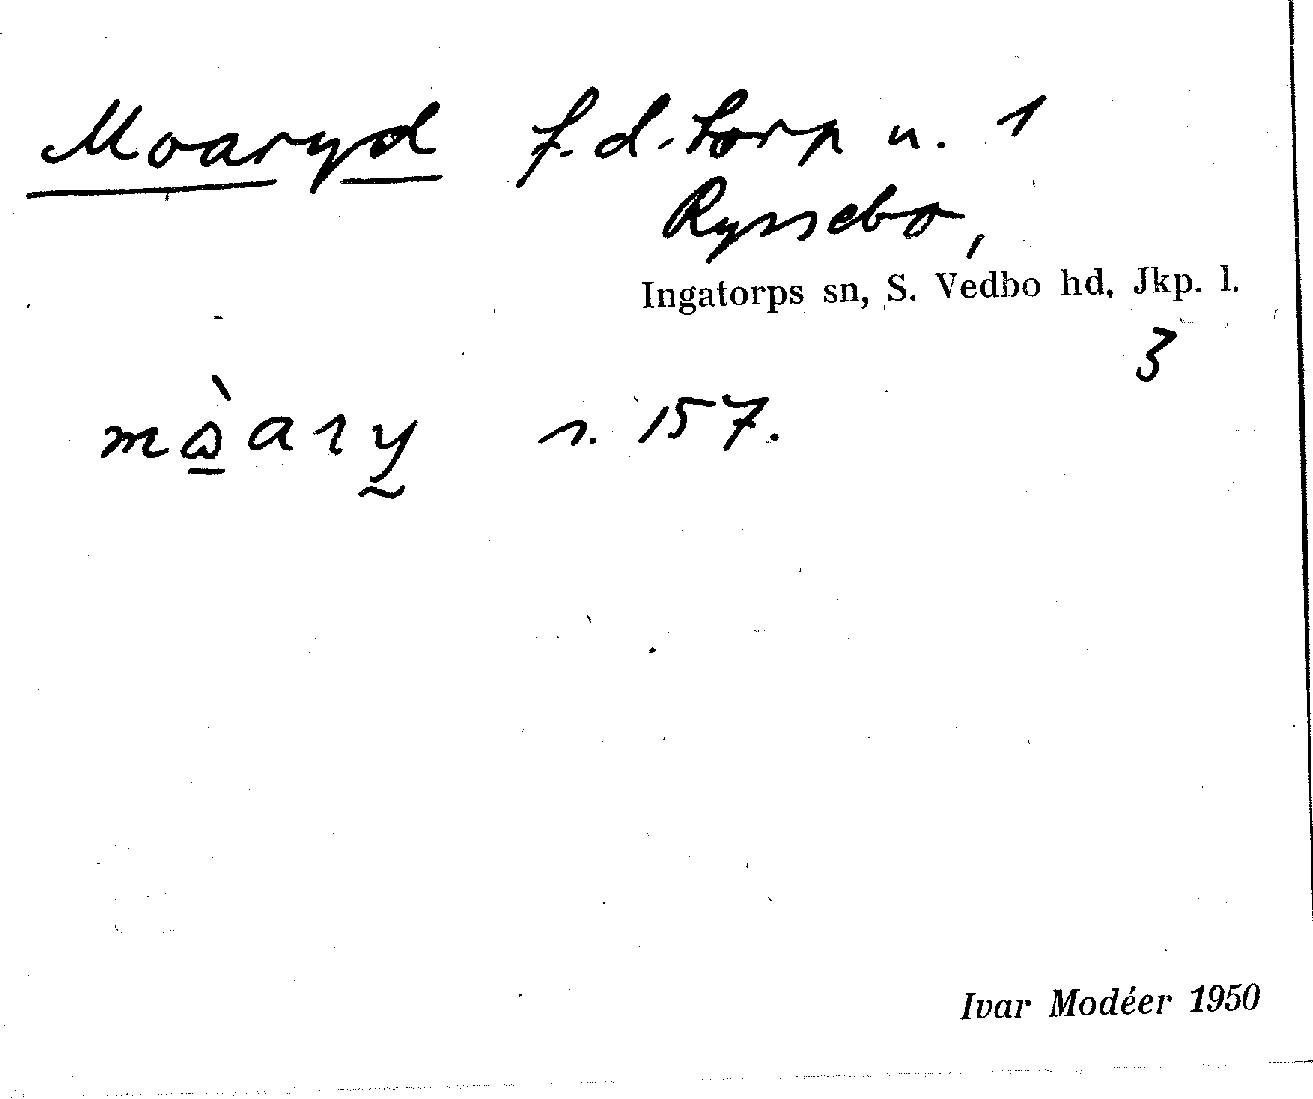 Moaryd f.d. torp u. 1
Ryssebo,
Ingatorps sn, S. Vedbo hd, Jkp. l.
3
s. 157.
Ivar Modéer 1950